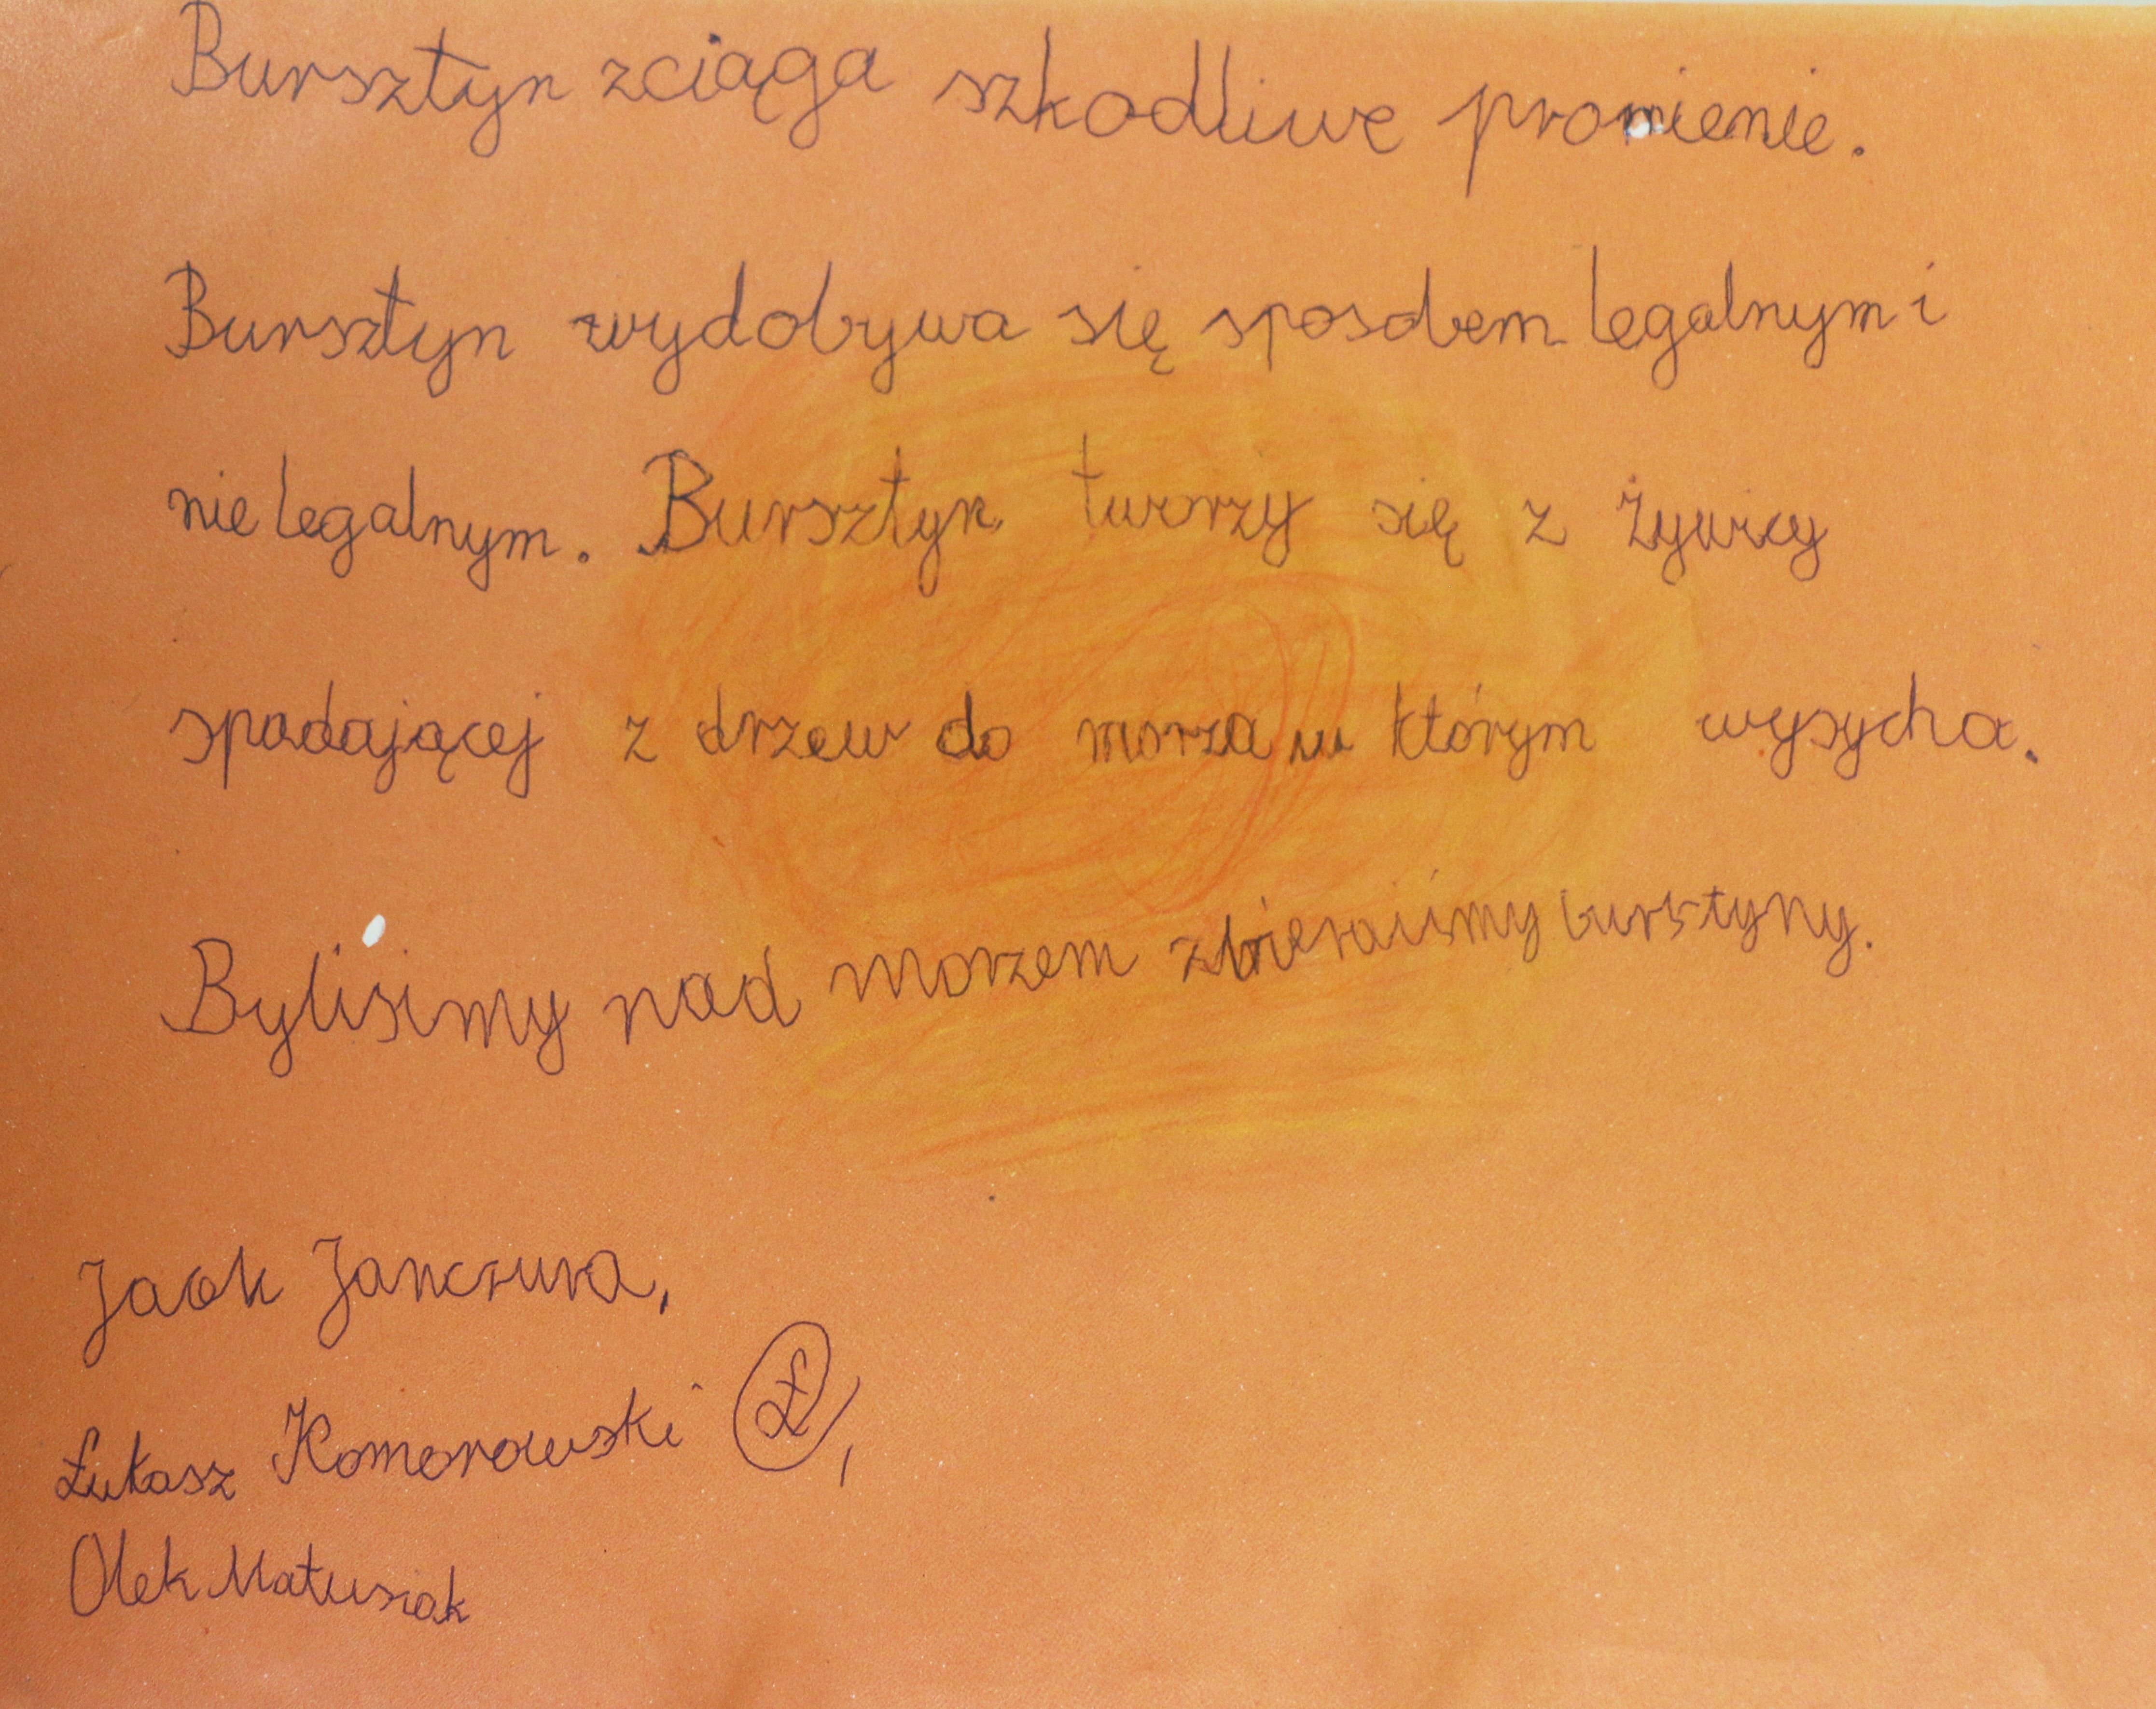 Bursztyn zciąga szkodliwe promienie.
Bursztyn wydobywa się sposobem legalnym i
nie legalnym. Bursztyn tworzy się z żywicy
spadającej z drzew do morza w którym wysycha.
Bylisimy nad morzem zbieraiismy bursztyny.
Jacek Janczura,
Łukasz Komorowski Ł,
Olek Matusiak